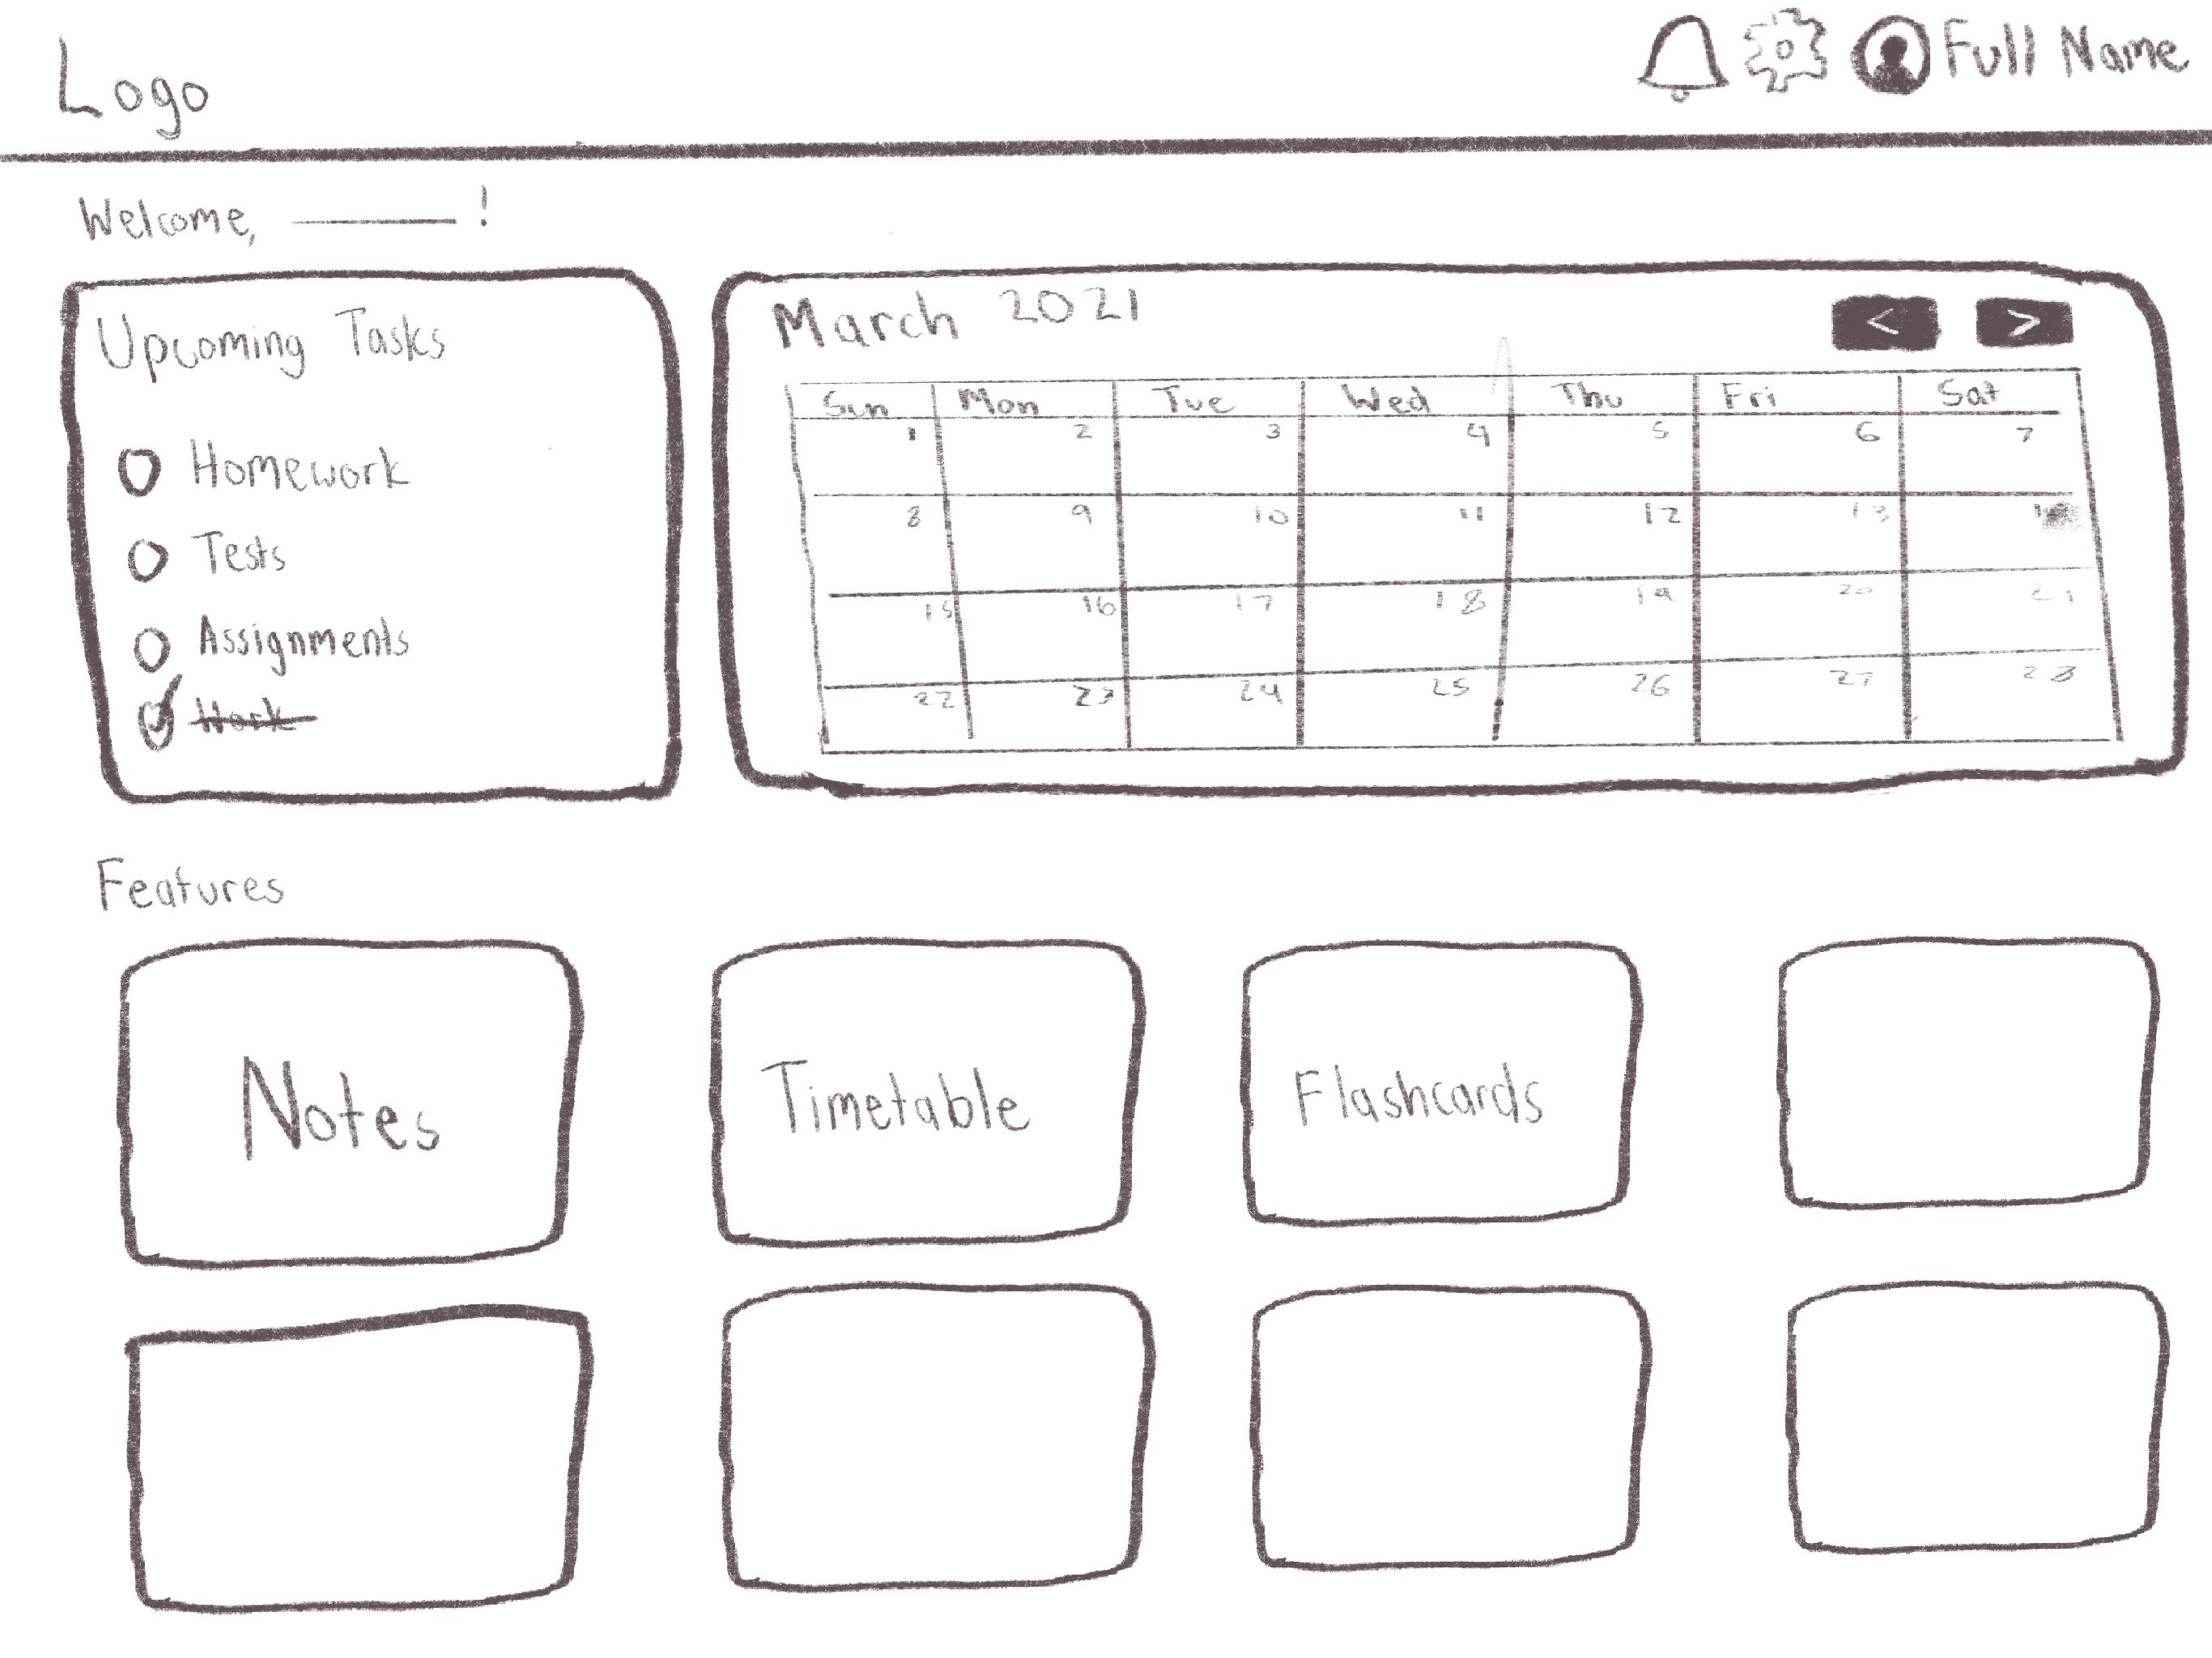 Logo
Full Name
Welcome, ______ !
Upcoming Tasks
Homework
Tests
Assignments
Work
March 2021
< >
Sun Mon Tue Wed Thu Fri Sat
1 2 3 4 5 6 7
8 9 10 11 12 13
15 16 17 18 19 20 21
22 23 24 25 26 27 28
Features
Notes Timetable Flashcards